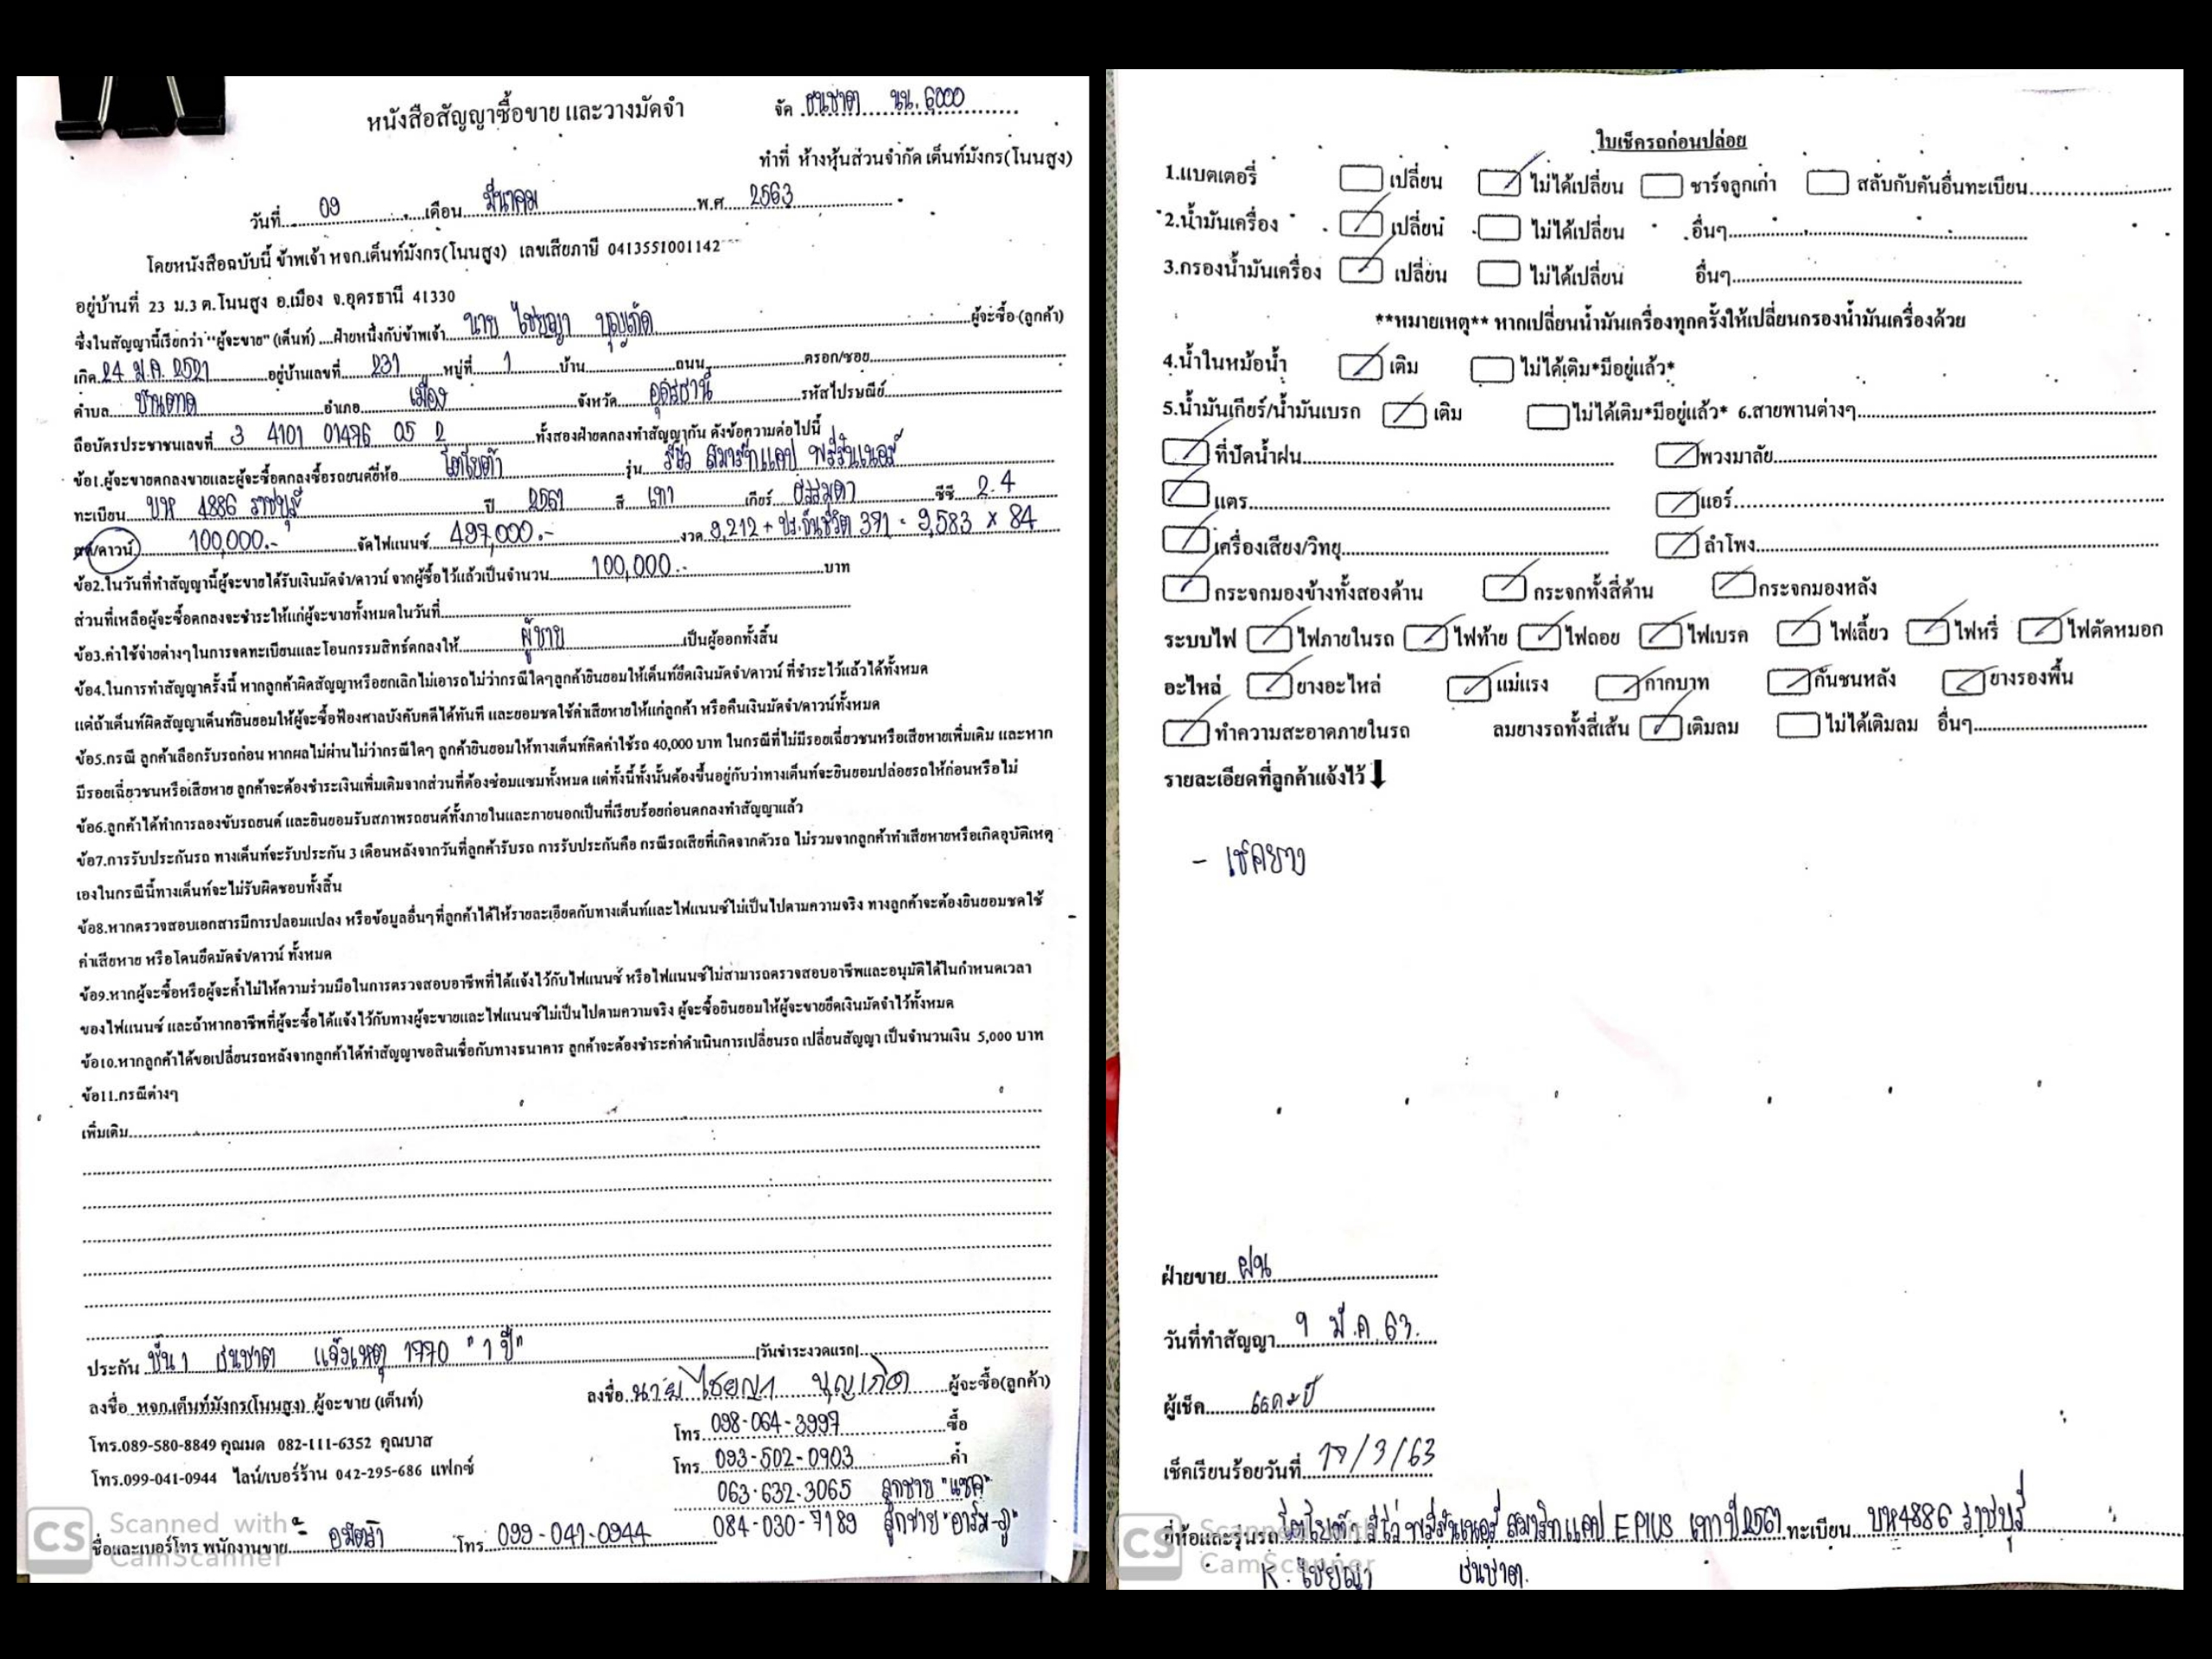 หนังสือสัญญาซื้อขาย และวางมัดจำ
จัด ธนชาต นน. 6000
ทำที่ ห้างหุ้นส่วนจำกัด เต็นท์มังกร(โนนสูง)
วันที่ 09 เดือน มีนาคม พ.ศ. 2563
โดยหนังสือฉบับนี้ ข้าพเจ้า หจก.เต็นท์มังกร(โนนสูง) เลขเสียภาษี 0413551001142
อยู่บ้านที่ 23 ม.3 ต.โนนสูง อ.เมือง จ.อุดรธานี 41330
ซึ่งในสัญญานี้เรียกว่า "ผู้จะขาย" (เต็นท์) ....ฝ่ายหนึ่งกับข้าพเจ้า นาย ไชยญา บุญเกิด ผู้จะซื้อ (ลูกค้า)
เกิด 24 ม.ค. 2521 อยู่บ้านเลขที่ 231 หมู่ที่ 1 บ้าน ถนน ตรอก/ซอย
ตำบล บ้านตาด อำเภอ เมือง จังหวัด อุดรธานี รหัสไปรษณีย์
ถือบัตรประชาชนเลขที่ 3 4101 01476 05 2 ทั้งสองฝ่ายตกลงทำสัญญากัน ดังข้อความต่อไปนี้
ข้อ1.ผู้จะขายตกลงขายและผู้จะซื้อตกลงซื้อรถยนต์ยี่ห้อ โตโยต้า รุ่น รีโว่ สมาร์ทแคป พรีรันเนอร์
ทะเบียน บห 4886 ราชบุรี ปี 2561 สี เทา เกียร์ ธรรมดา ซีซี 2.4
สด/ดาวน์ 100,000.- จัดไฟแนนซ์ 497,000.- งวด 9,212 + ปร.ชีวิต 371 = 9,583 x 84
ข้อ2.ในวันที่ทำสัญญานี้ผู้จะขายได้รับเงินมัดจำ/ดาวน์ จากผู้ซื้อไว้แล้วเป็นจำนวน 100,000.- บาท
ส่วนที่เหลือผู้จะซื้อตกลงจะชำระให้แก่ผู้จะขายทั้งหมดในวันที่
ข้อ3.ค่าใช้จ่ายต่างๆในการจดทะเบียนและโอนกรรมสิทธ์ตกลงให้ ผู้ขาย เป็นผู้ออกทั้งสิ้น
ข้อ4.ในการทำสัญญาครั้งนี้ หากลูกค้าผิดสัญญาหรือยกเลิกไม่เอารถไม่ว่ากรณีใดๆลูกค้ายินยอมให้เต็นท์ยึดเงินมัดจำ/ดาวน์ ที่ชำระไว้แล้วได้ทั้งหมด
แต่ถ้าเต็นท์ผิดสัญญาเต็นท์ยินยอมให้ผู้จะซื้อฟ้องศาลบังคับคดีได้ทันที และยอมชดใช้ค่าเสียหายให้แก่ลูกค้า หรือคืนเงินมัดจำ/ดาวน์ทั้งหมด
ข้อ5.กรณี ลูกค้าเลือกรับรถก่อน หากผลไม่ผ่านไม่ว่ากรณีใดๆ ลูกค้ายินยอมให้ทางเต็นท์คิดค่าใช้รถ 40,000 บาท ในกรณีที่ไม่มีรอยเฉี่ยวชนหรือเสียหายเพิ่มเติม และหาก
มีรอยเฉี่ยวชนหรือเสียหาย ลูกค้าจะต้องชำระเงินเพิ่มเติมจากส่วนที่ต้องซ่อมแซมทั้งหมด แต่ทั้งนี้ทั้งนั้นต้องขึ้นอยู่กับว่าทางเต็นท์จะยินยอมปล่อยรถให้ก่อนหรือไม่
ข้อ6.ลูกค้าได้ทำการลองขับรถยนต์ และยินยอมรับสภาพรถยนต์ทั้งภายในและภายนอกเป็นที่เรียบร้อยก่อนตกลงทำสัญญาแล้ว
ข้อ7.การรับประกันรถ ทางเต็นท์จะรับประกัน 3 เดือนหลังจากวันที่ลูกค้ารับรถ การรับประกันคือ กรณีรถเสียที่เกิดจากตัวรถ ไม่รวมจากลูกค้าทำเสียหายหรือเกิดอุบัติเหตุ
เองในกรณีนี้ทางเต็นท์จะไม่รับผิดชอบทั้งสิ้น
ข้อ8.หากตรวจสอบเอกสารมีการปลอมแปลง หรือข้อมูลอื่นๆที่ลูกค้าได้ให้รายละเอียดกับทางเต็นท์และไฟแนนซ์ไม่เป็นไปตามความจริง ทางลูกค้าจะต้องยินยอมชดใช้
ค่าเสียหาย หรือโดนยึดมัดจำ/ดาวน์ ทั้งหมด
ข้อ9.หากผู้จะซื้อหรือผู้จะค้ำไม่ให้ความร่วมมือในการตรวจสอบอาชีพที่ได้แจ้งไว้กับไฟแนนซ์ หรือไฟแนนซ์ไม่สามารถตรวจสอบอาชีพและอนุมัติได้ในกำหนดเวลา
ของไฟแนนซ์ และถ้าหากอาชีพที่ผู้จะซื้อได้แจ้งไว้กับทางผู้จะขายและไฟแนนซ์ไม่เป็นไปตามความจริง ผู้จะซื้อยินยอมให้ผู้จะขายยึดเงินมัดจำไว้ทั้งหมด
ข้อ10.หากลูกค้าได้ขอเปลี่ยนรถหลังจากลูกค้าได้ทำสัญญาขอสินเชื่อกับทางธนาคาร ลูกค้าจะต้องชำระค่าดำเนินการเปลี่ยนรถ เปลี่ยนสัญญา เป็นจำนวนเงิน 5,000 บาท
ข้อ11.กรณีต่างๆ
เพิ่มเติม
ประกัน ชั้น 1 ธนชาต แจ้งเหตุ 1770 "1 ปี" [วันชำระงวดแรก]
ลงชื่อ หจก.เต็นท์มังกร(โนนสูง) ผู้จะขาย (เต็นท์) ลงชื่อ นาย ไชยญา บุญเกิด ผู้จะซื้อ(ลูกค้า)
โทร.089-580-8849 คุณมด 082-111-6352 คุณบาส โทร 098-064-3997 ซื้อ
โทร.099-041-0944 ไลน์/เบอร์ร้าน 042-295-686 แฟกซ์ โทร 093-502-0903 ค้ำ
063-632-3065 ลูกชาย "แชค"
084-030-7189 ลูกชาย
ชื่อและเบอร์โทร พนักงานขาย โทร 099-041-0944
CS Scanned with CamScanner
ใบเช็ครถก่อนปล่อย
1.แบตเตอรี่ เปลี่ยน ไม่ได้เปลี่ยน ชาร์จลูกเก่า สลับกับคันอื่นทะเบียน
2.น้ำมันเครื่อง เปลี่ยน ไม่ได้เปลี่ยน อื่นๆ
3.กรองน้ำมันเครื่อง เปลี่ยน ไม่ได้เปลี่ยน อื่นๆ
**หมายเหตุ** หากเปลี่ยนน้ำมันเครื่องทุกครั้งให้เปลี่ยนกรองน้ำมันเครื่องด้วย
4.น้ำในหม้อน้ำ เติม ไม่ได้เติม*มีอยู่แล้ว*
5.น้ำมันเกียร์/น้ำมันเบรก เติม ไม่ได้เติม*มีอยู่แล้ว* 6.สายพานต่างๆ
ที่ปัดน้ำฝน พวงมาลัย
แตร แอร์
เครื่องเสียง/วิทยุ ลำโพง
กระจกมองข้างทั้งสองด้าน กระจกทั้งสี่ด้าน กระจกมองหลัง
ระบบไฟ ไฟภายในรถ ไฟท้าย ไฟถอย ไฟเบรค ไฟเลี้ยว ไฟหรี่ ไฟตัดหมอก
อะไหล่ ยางอะไหล่ แม่แรง กากบาท กันชนหลัง ยางรองพื้น
ทำความสะอาดภายในรถ ลมยางรถทั้งสี่เส้น เติมลม ไม่ได้เติมลม อื่นๆ
รายละเอียดที่ลูกค้าแจ้งไว้
- เช็คยาง
ฝ่ายขาย ฝน
วันที่ทำสัญญา 9 มี.ค. 63.
ผู้เช็ค
เช็คเรียบร้อยวันที่ 17/3/63
ยี่ห้อและรุ่นรถ โตโยต้า รีโว่ พรีรันเนอร์ สมาร์ทแคป E PLUS เทา ปี 2561 ทะเบียน บห4886 ราชบุรี
K. ไชยญา ธนชาต.
CS Scanned with CamScanner